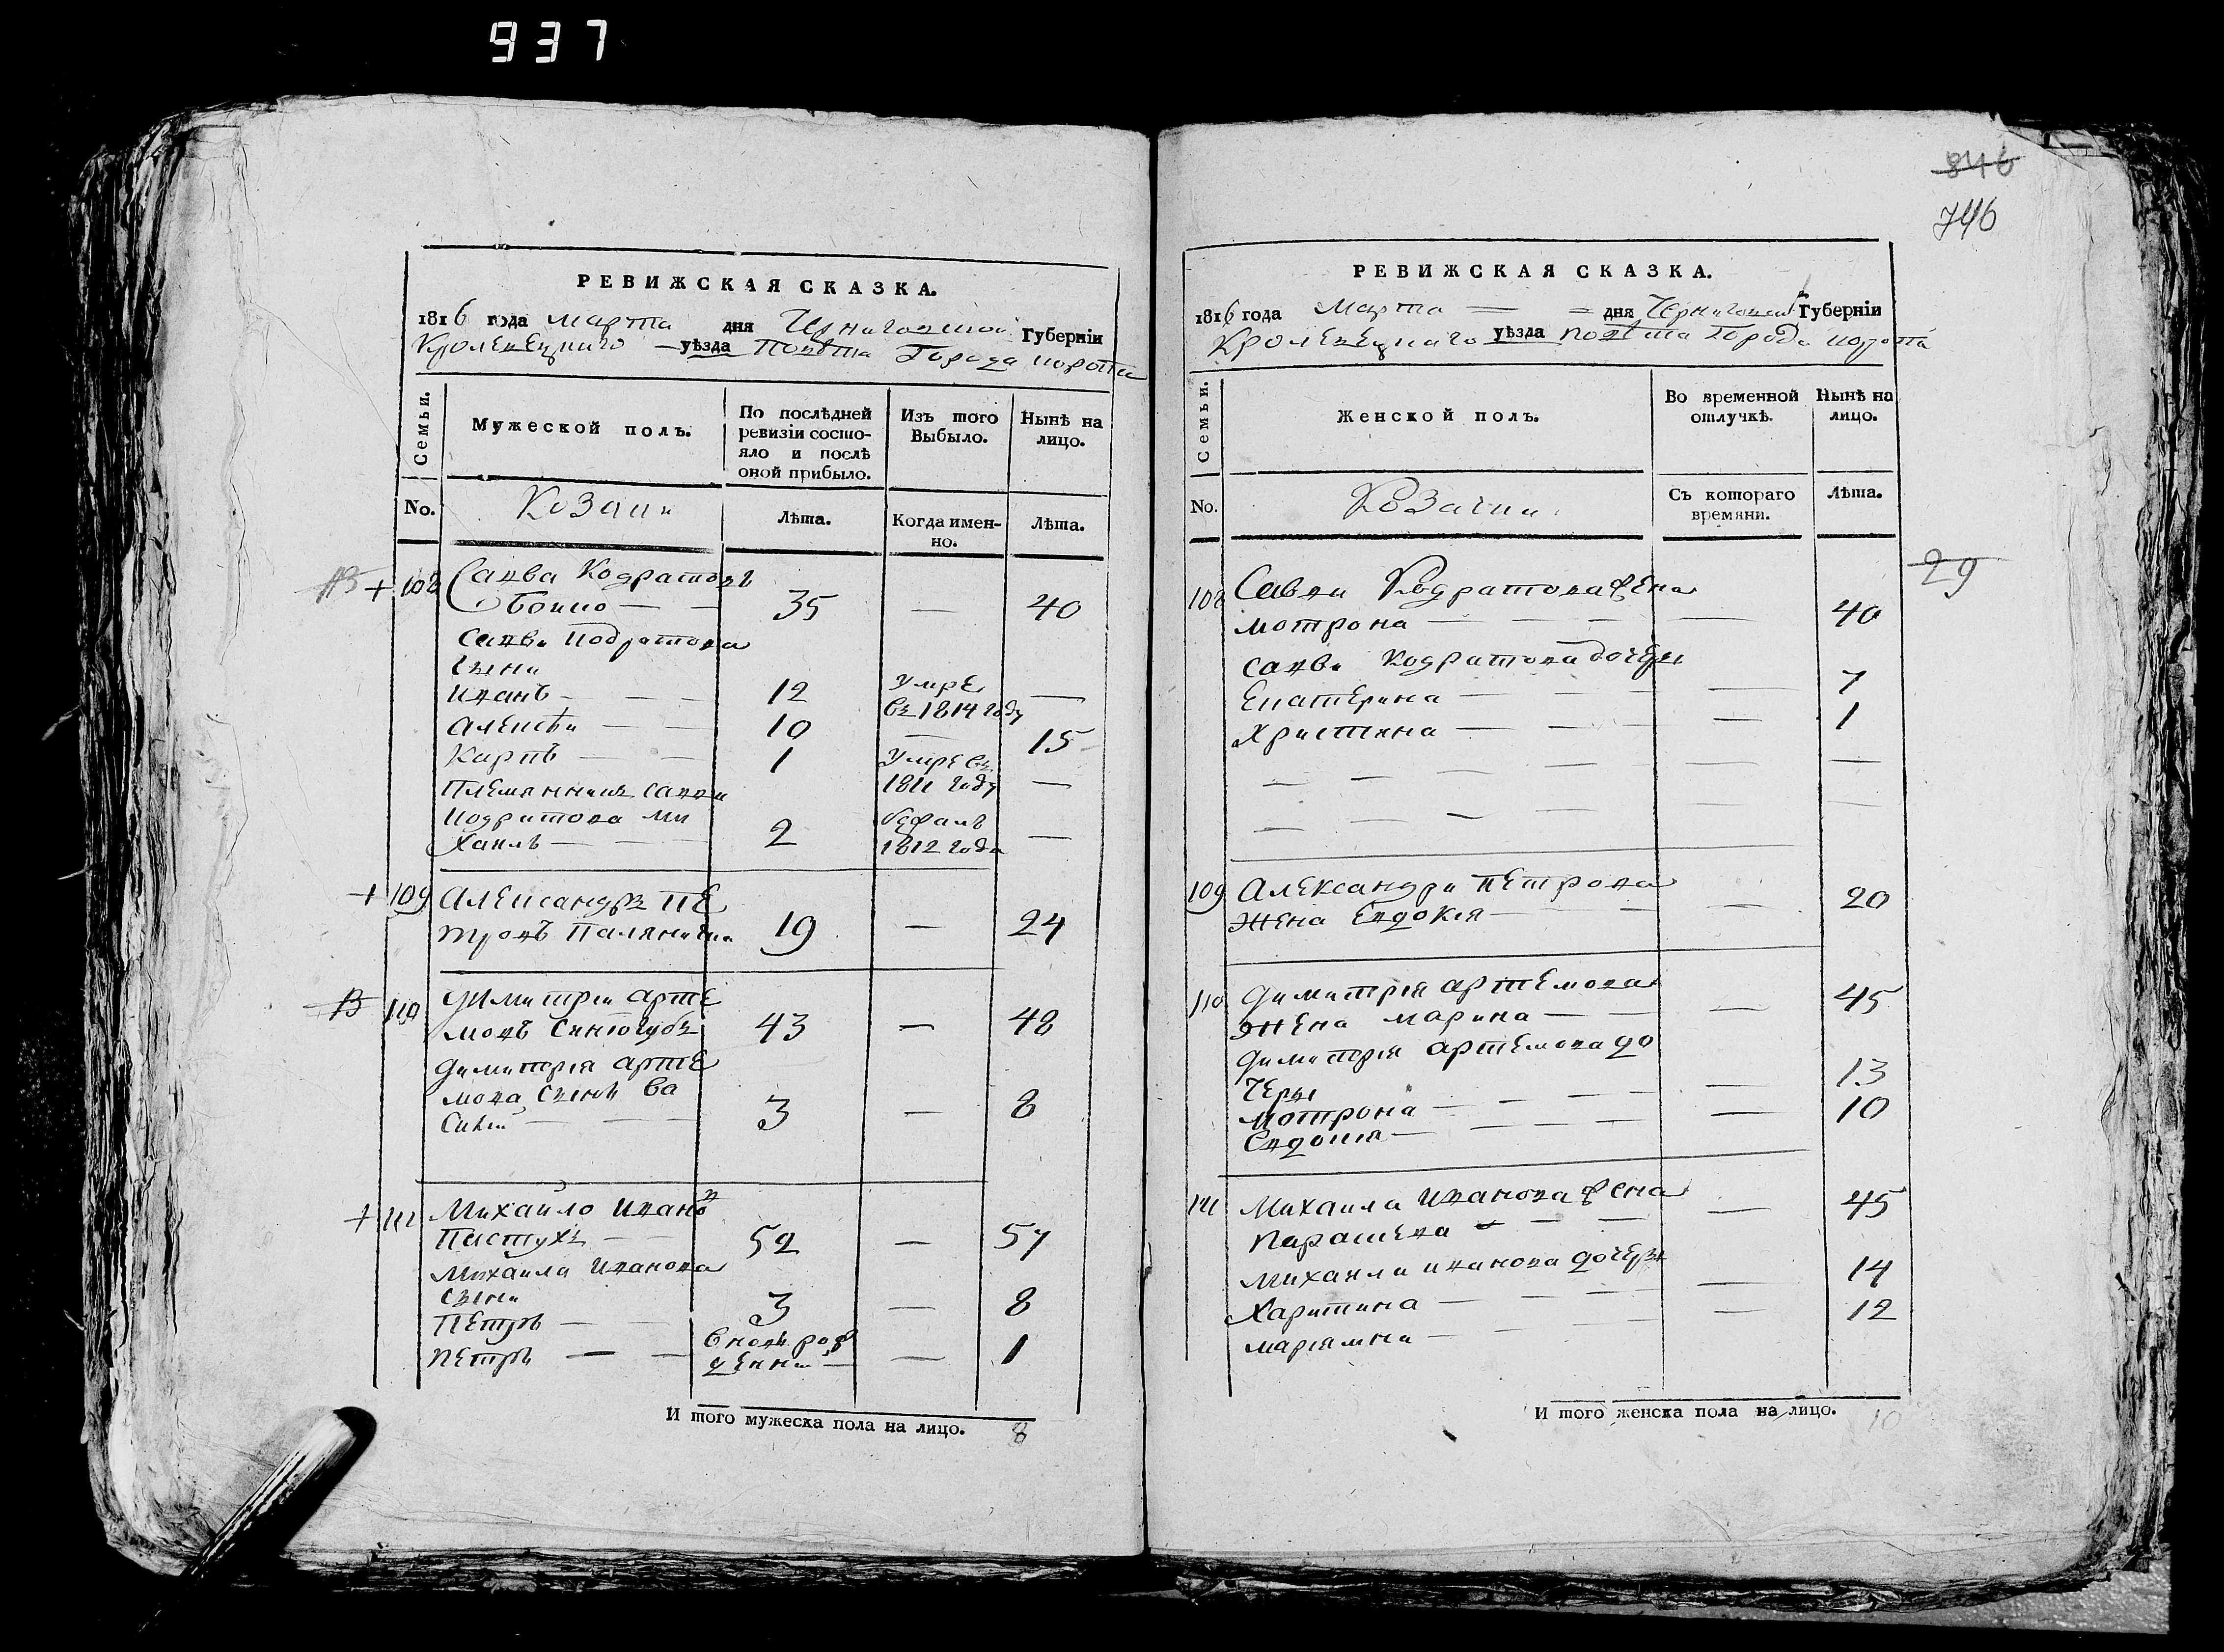 937
РЕВИЖСКАЯ СКАЗКА.
1816 года Марта дня Черниговской Губерніи
Кролевецкаго уѣзда Повѣта Города Коропа
Семьи.
Мужеской полъ.
По послѣдней ревизіи состояло и послѣ оной прибыло.
Изъ того Выбыло.
Нынѣ на лицо.
No.
Козаки
Лѣта.
Когда именно.
Лѣта.
+ 108 Савва Кодратовъ
Бойко — — 35 — 40
Саввы Кодратова
сыни
Иванъ — — — 12 Умре въ 1814 году —
Алексѣй — — 10 — 15
Карпъ — — 1 Умре въ 1811 году —
Племянникъ Саввы
Кодратова Ми
хаилъ — — — 2 1812 года —
+ 109 Александръ Пе
тровъ 19 — 24
110 Димитрій Арте
мовъ Сингогубъ 43 — 48
Димитрія Арте
мова сынъ Ва
силій — — 3 — 8
+ 111 Михайло Ивановъ
Пастухъ — — 52 — 57
Михаила Иванова
сыни
Петръ — — 3 — 8
Петръ — — вновь рожденный — 1
И того мужеска пола на лицо. 8
846
746
РЕВИЖСКАЯ СКАЗКА.
1816 года Марта — — дня Черниговской Губерніи
Кролевецкаго уѣзда Повѣта Города Коропа
Семьи.
Женской полъ.
Во временной отлучкѣ.
Нынѣ на лицо.
No.
Козачки
Съ котораго времяни.
Лѣта.
29
108 Саввы Кодратова жена
Мотрона — — — — 40
Саввы Кодратова дочери
Екатерина — — — — 7
Христина — — — — 1
109 Александра Петрова
жена Евдокія — — — 20
110 Димитрія Артемова
жена Марина — — — 45
Димитрія Артемова до
чери
Мотрона — — — — 13
Евдокія — — — — 10
111 Михаила Иванова жена
Параскева — — — 45
Михаила Иванова дочери
Харитина — — — — 14
Маріямна — — — — 12
И того женска пола на лицо. 10